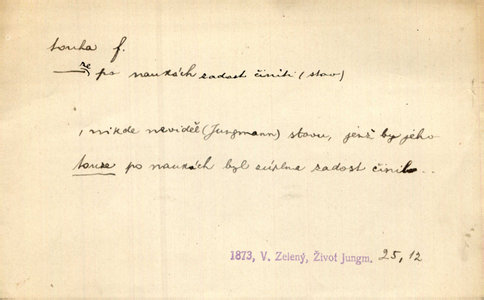 touha f.
—ze po naukách zadost činiti (stav)
, nikde neviděl (Jungmann) stavu, jenž by jeho
touze po naukách byl zúplna zadost činil..
1873, V. Zelený, Život Jungm. 25, 12